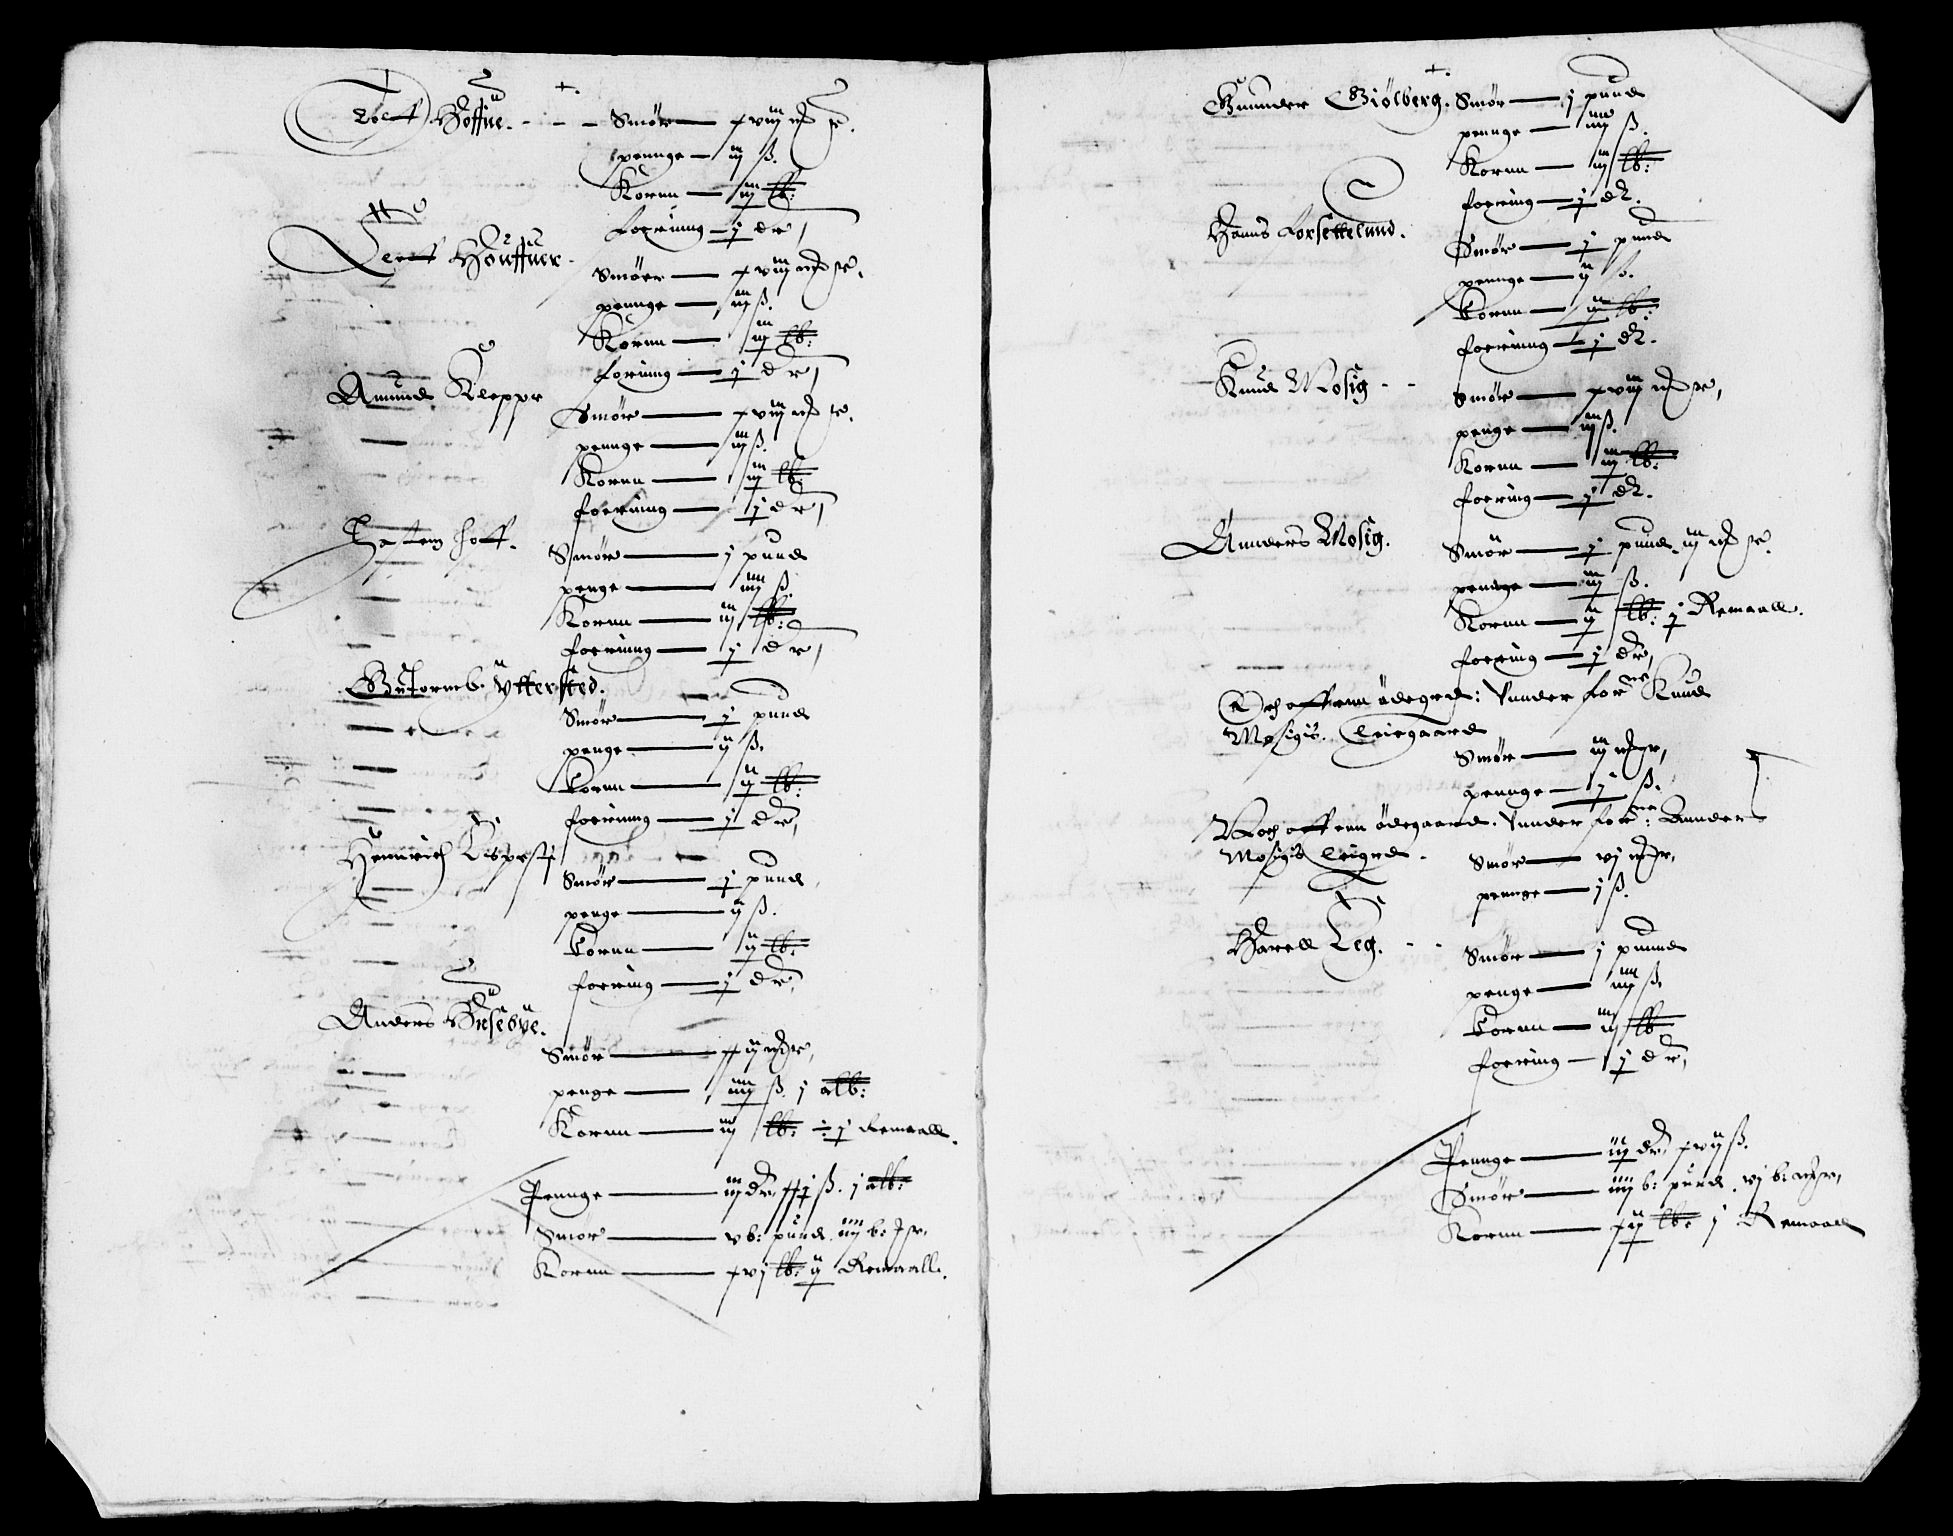 Høffue. - - - Smør — xviij mrk
pennge — iij ß.
Kornn — iij lb:
foerinng — j dr
Houffuer. Smøer — xviij mrk
pennge — iij ß.
Kornn — iij lb:
forinng — j dr
Amund Kleppe
Smør — xviij mrk
pennge — iij ß.
Kornn — iij lb:
foerinng — j dr
Hoff.
Smør — j pund
penge — iiij ß.
Kornn — iij lb:
foerinng — j dr
Guttormb. Yttersted.
Smør — j pund
penge — ij ß.
Kornn — ij lb:
foerinng — j dr
Hennrich
Smør — j pund
penge — ij ß.
Kornn — ij lb:
foering — j dr
Anders Husebye.
Smør — xxij mrk
penge — iiij ß. j alb:
Kornn — iij lb: j Remaall.
Pennge — iij dr. j ß. j alb:
Smør — v b: pund. iiij b:
Kornn — xvj lb: ij Remaall.
Gunder Giølberg. Smør — j pund
pennge — iiij ß.
Kornn — iij lb:
foering — j dr.
Hanns Torsettelund.
Smør — j pund
pennge — ij ß.
Kornn — ij lb:
foerinng — j dr.
Knud Mosig - -
Smør — xviij mrk
penge — iij ß.
Kornn — iij lb:
foering — j dr.
Anders Mosig.
Smør — j pund. iij mrk
pennge — iij ß.
Kornn — ij lb: j Remaall.
foering — j dr
Och aff enn ødegrd: Vnnder for ne Knud
Mosigs. Leiegaard
Smør — iij mrk
pennge — j ß.
Noch aff enn ødegaard. Vnnder for ne: Anders
Mosigs Leigrd.
Smør — vj mrk
pennge — j ß.
Harell Leg. - -
Smør — j pund
penge — iiij ß.
Kornn — iij lb
foering — j dr
Pennge — iij dr xvij ß.
Smør — iiij b: pund. vj b: mrk
Kornn — xij lb: j Remaall